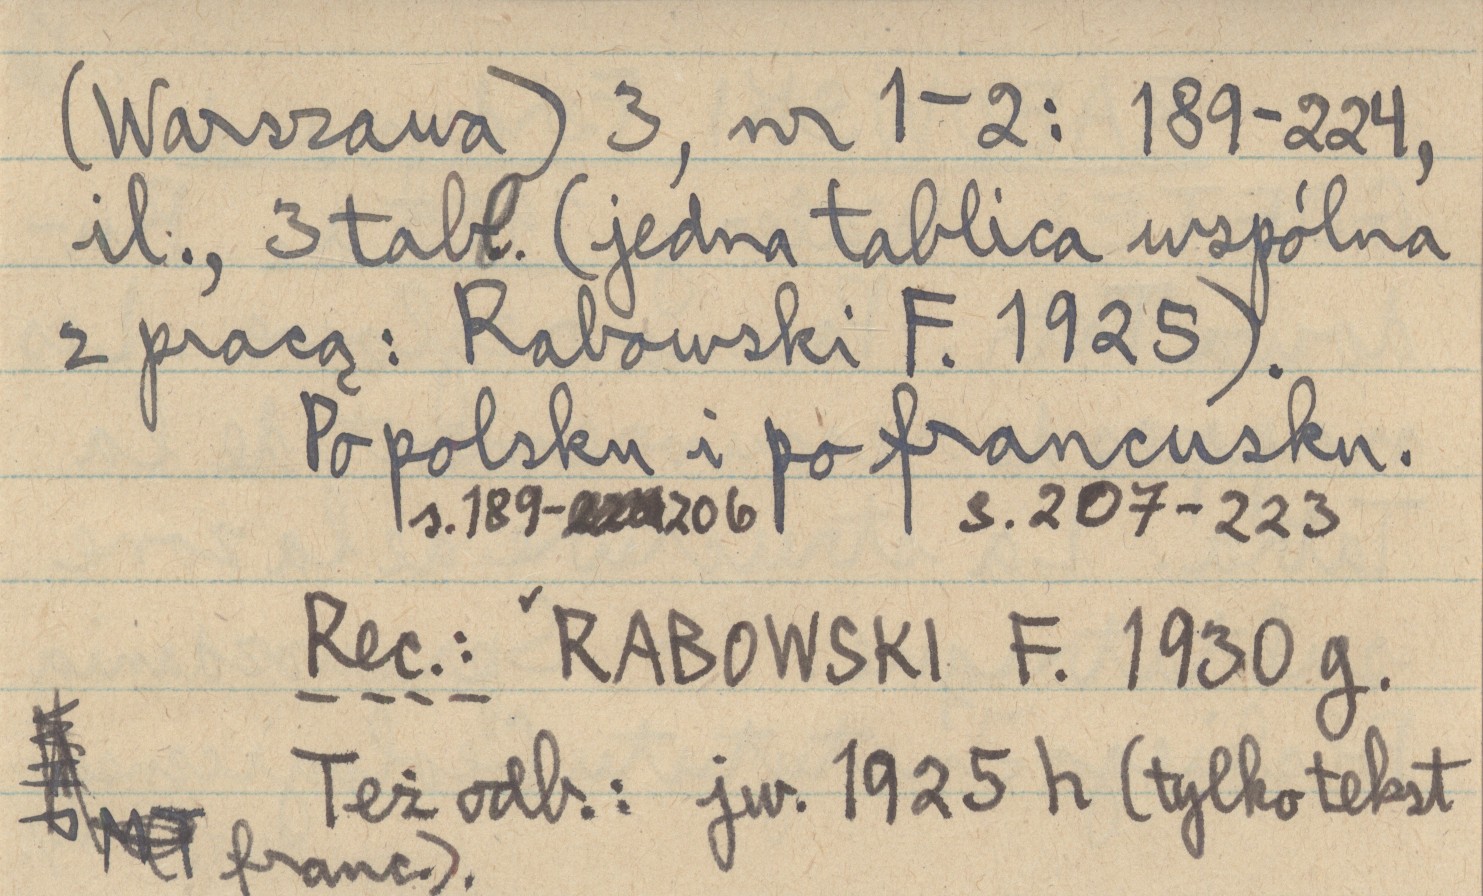 (Warszawa) 3, nr 1-2: 189-224,
il., 3 tabl. (jedna tablica wspólna
z pracą: Rabowski F. 1925).
Po polsku i po francusku.
s. 189-206 s. 207-223
Rec.: ˇRABOWSKI F. 1930 g.
Też odb.: jw. 1925 h (tylko tekst
franc.).